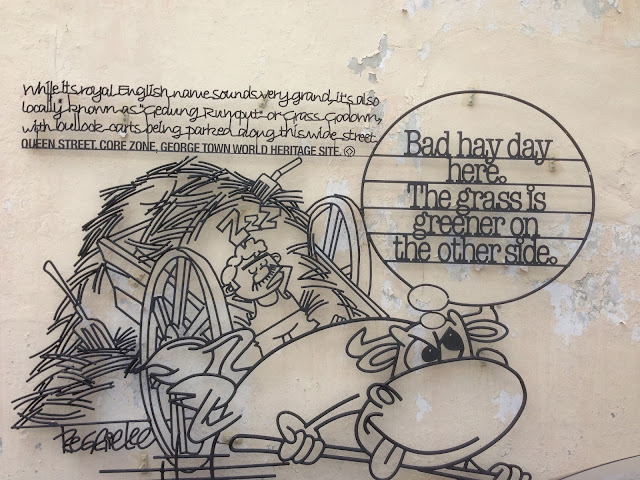 While its royal English name sounds very grand, it's also
locally known as "Gedung Rumput" or Grass Godown,
with bullock-carts being parked along this wide street.
QUEEN STREET. CORE ZONE, GEORGE TOWN WORLD HERITAGE SITE.
Bad hay day
here.
The grass is
greener on
the other side.
ZZZ